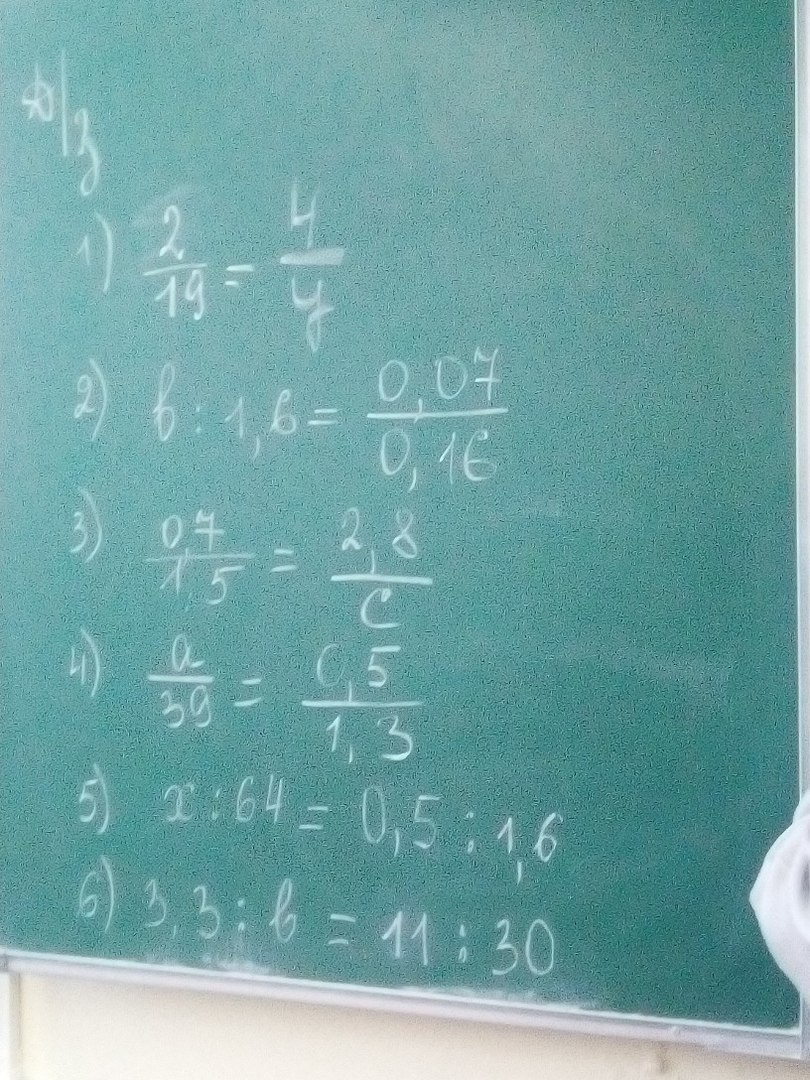 Д/з
1) 2/19 = 4/y
2) b : 1,6 = 0,07/0,16
3) 0,7/1,5 = 2,8/c
4) a/39 = 0,5/1,3
5) x : 64 = 0,5 : 1,6
6) 3,3 : b = 11 : 30